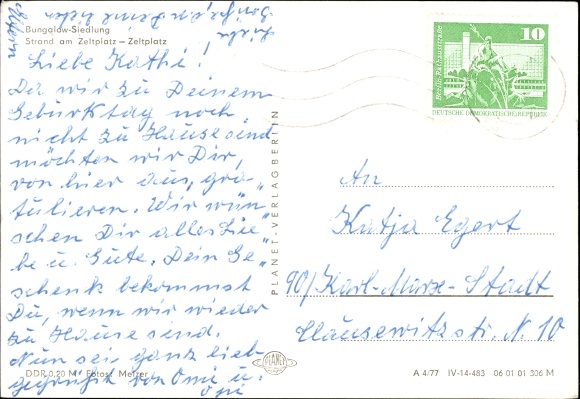 Bungalow-Siedlung
Strand am Zeltplatz – Zeltplatz
Liebe Kathi!
Da wir zu Deinem
Geburtstag noch
nicht zu Hause sind
möchten wir Dir,
von hier aus, gra-
tulieren. Wir wün-
schen Dir alles Lie-
be u. Gute. Dein Ge-
schenk bekommst
Du, wenn wir wieder
zu Hause sind.
Nun sei ganz lieb
gegrüßt von Omi u.
Opi
DDR 0,20 M Fotos: Melzer
PLANET-VERLAG BERLIN
Berlin, Rathausstraße
10
DEUTSCHE DEMOKRATISCHE REPUBLIK
An
Katja Egert
90/Karl-Marx-Stadt
Clausewitzstr. N. 10
PLANET
A 4/77 IV-14-483 06 01 01 306 M